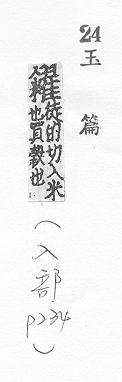 24
玉篇
糴徒的切入米
也買穀也
(入部
P234)